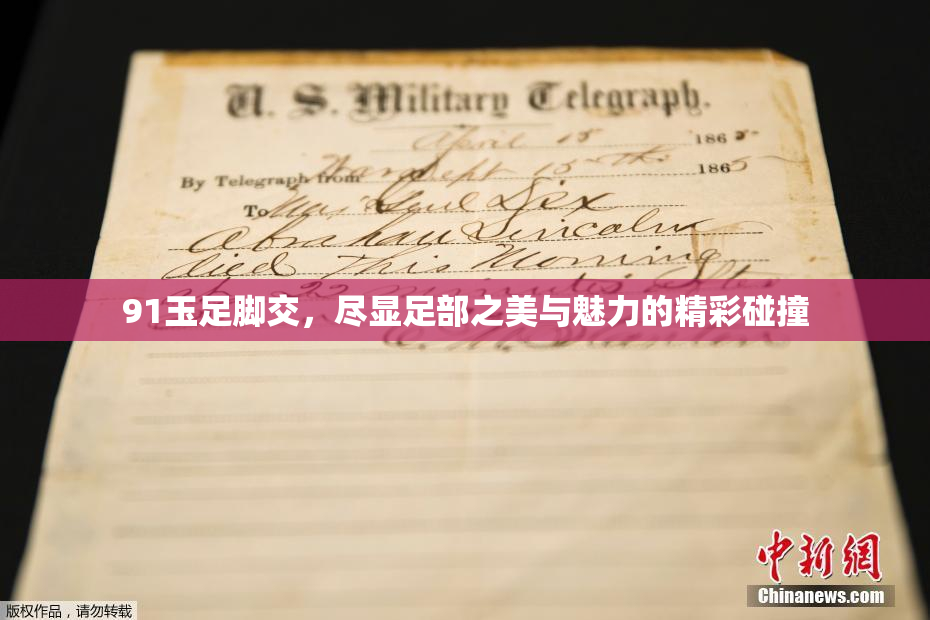 U. S. Military Telegraph.
April 15 1865
By Telegraph from War Dept 15th 1865
To Maj Genl Dix
Abraham Lincoln
died This Morning
at 22 minutes after
91玉足脚交，尽显足部之美与魅力的精彩碰撞
中新網
Chinanews.com
版权作品，请勿转载